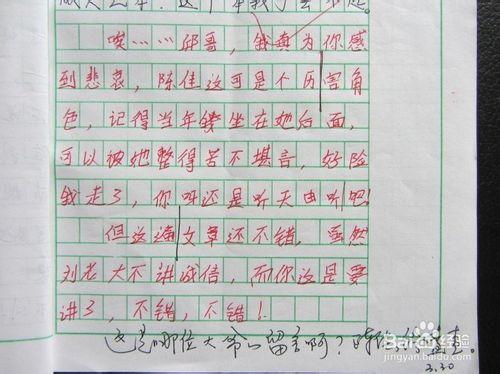 唉……邱哥，我真为你感
到悲哀，陈佳这可是个历害角
色，记得当年坐在她后面，
可以被她整得苦不堪言，好险
我走了，你呀还是听天由听吧!
但这编文章还不错，虽然
刘老大不讲诚信，而你还是要
讲了，不错，不错！
这是哪位大爷的留言啊？
3.30
Baidu 经验
jingyan.baidu.com